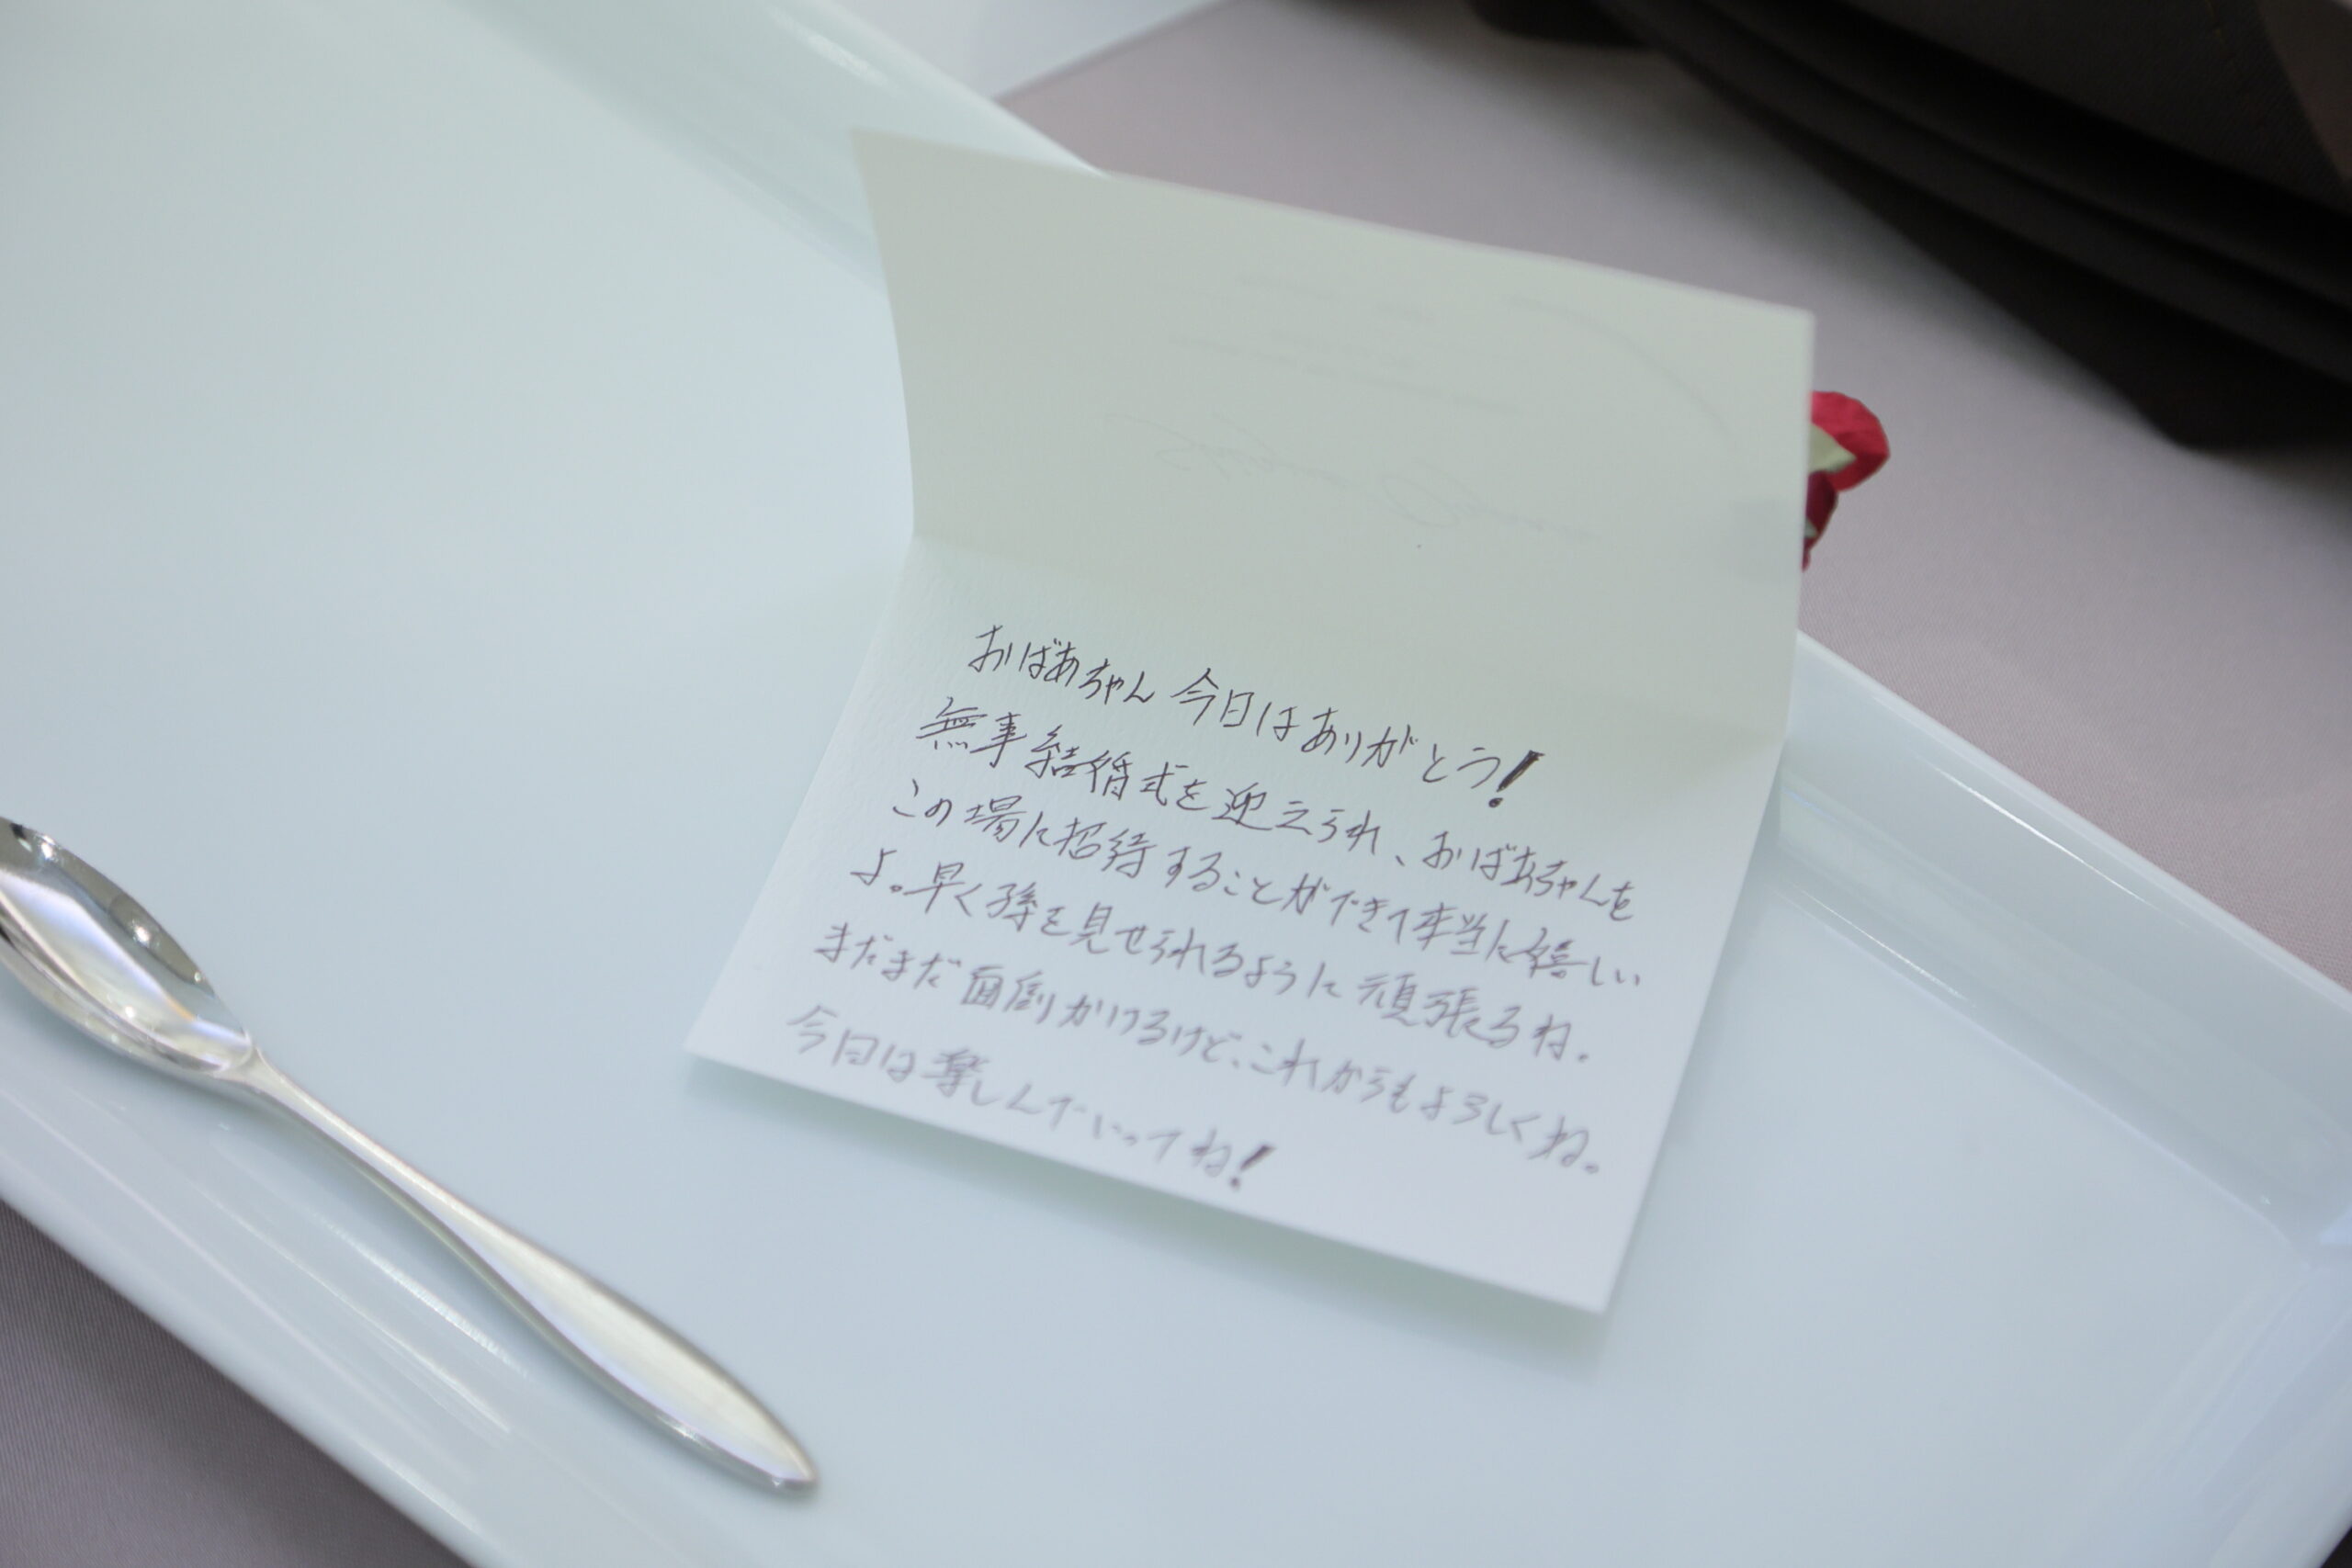 おばあちゃん 今日はありがとう!
無事結婚式を迎えられ、おばあちゃんを
この場に招待することができて本当に嬉しい
よ。早く孫を見せられるように頑張るね。
まだまだ面倒かけるけど、これからもよろしくね。
今日は楽しんでいってね!